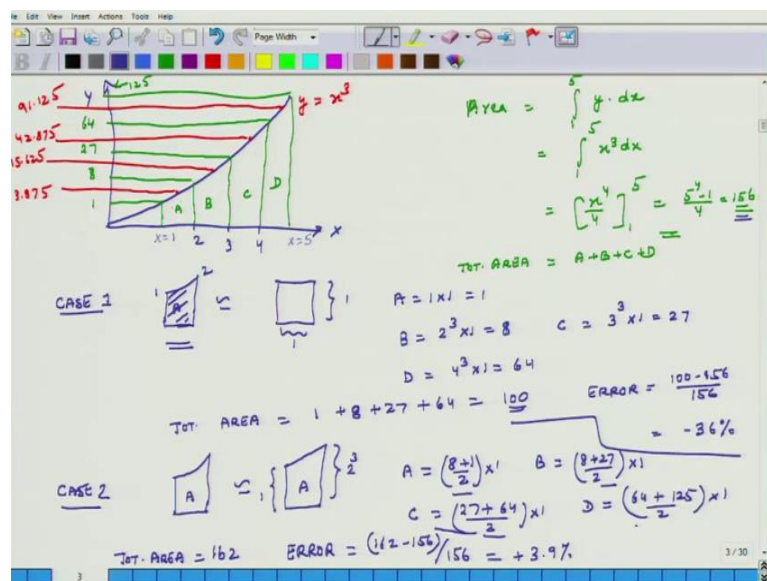 File Edit View Insert Actions Tools Help
Page Width
B I
Y 125
91.125
64
42.875
27
15.625
8
3.875
1
A B C D
x=1 2 3 4 x=5 x
y = x³
Area = ∫₁⁵ y. dx
= ∫₁⁵ x³dx
= [x⁴/4]₁⁵ = (5⁴-1)/4 = 156
TOT. AREA = A+B+C+D
CASE 1 1 A 2 ≃ } 1
1
A = 1x1 = 1
B = 2³x1 = 8 C = 3³x1 = 27
D = 4³x1 = 64
TOT. AREA = 1 +8+27+64 = 100
ERROR = (100-156)/156
= -36%
CASE 2 A ≃ 1 { A } 2³
A = (8+1/2)x1 B = (8+27/2)x1
C = (27+64/2)x1 D = (64+125/2)x1
TOT. AREA = 162 ERROR = (162-156)/156 = +3.9%
3/30
3